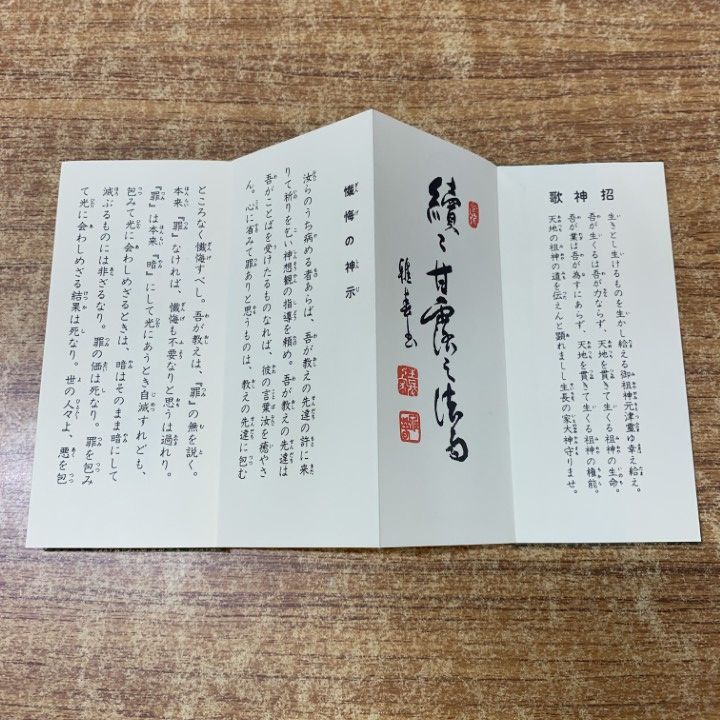 招神歌
生きとし生けるものを生かし給える御祖神元津霊ゆ幸え給え。
吾が生くるは吾が力ならず、天地を貫きて生くる祖神の生命。
吾が業は吾が為すにあらず、天地を貫きて生くる祖神の権能。
天地の祖神の道を伝えんと顕れましし生長の家大神守りませ。
續々甘露之法雨
雅春書
懺悔の神示
汝らのうち病める者あらば、吾が教えの先達の許に来
りて祈りを乞い神想観の指導を頼め。吾が教えの先達は
吾がことばを受けたるものなれば、彼の言葉汝を癒やさ
ん。心に省みて罪ありと思うものは、教えの先達に包む
ところなく懺悔すべし。吾が教えは、『罪』の無を説く。
本来『罪』なければ、懺悔も不要なりと思うは過れり。
『罪』は本来『暗』にして光にあうとき自滅すれども、
包みて光に会わしめざるときは、暗はそのまま暗にして
滅ぶるものには非ざるなり。罪の価は死なり。罪を包み
て光に会わしめざる結果は死なり。世の人々よ、悪を包